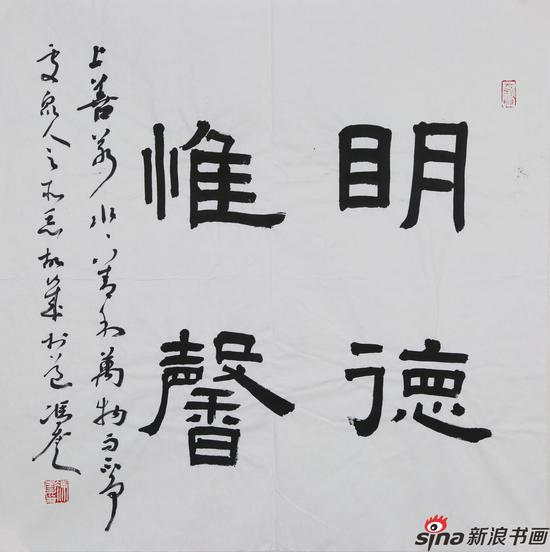 明德
惟馨
上善若水水善利萬物而不爭
處眾人之所惡故幾於道 馮
sina新浪书画